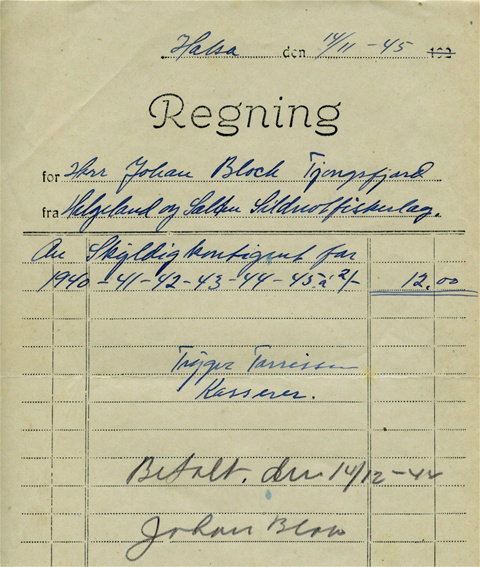 Halsa den 14/11-45 192
Regning
for Herr Johan Bloch Tjongsfjord
fra Helgeland og Salten Sildnotfiskerlag.
An Skyldig kontigent for
1940-41-42-43-44-45 à 2/- 12.00
Kasserer.
Betalt. den 14/12-44
Johan Bloch